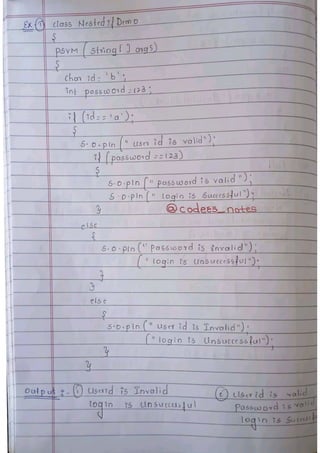 Ex ① class Nested if Demo
{
PSVM ( String [ ] args)
{
char id = 'b';
int password = 123;
if (id == 'a');
{
S.O.pln (" user id is valid");
if (password == 123)
{
S.O.pln (" password is valid ");
S.O.pln (" login is Successful");
}
@codees_notes
else
{
S.O.pln (" Password is invalid");
(" login is Unsuccessful");
}
}
else
{
S.O.pln (" user id is Invalid");
(" login is Unsuccessful");
}
}
Output :- ① Userid is Invalid
login is unsuccessful
② Userid is valid
Password is valid
login is